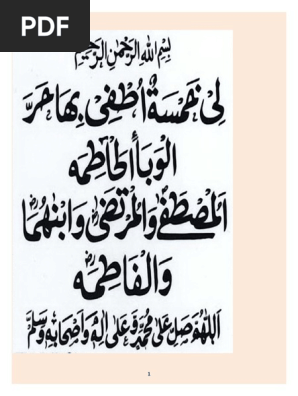 PDF
بِسْمِ اللهِ الرَّحْمٰنِ الرَّحِيْمِ
لِىْ خَمْسَةٌ اُطْفِىْ بِهَا حَرَّ
الْوَبَآءِ الْحَاطِمَه
اَلْمُصْطَفٰى وَالْمُرْتَضٰى وَابْنٰهُمَا
وَالْفَاطِمَه
اَللّٰهُمَّ صَلِّ عَلٰى مُحَمَّدٍ وَّعَلٰى اٰلِهٖ وَاَصْحَابِهٖ وَسَلِّمْ
1